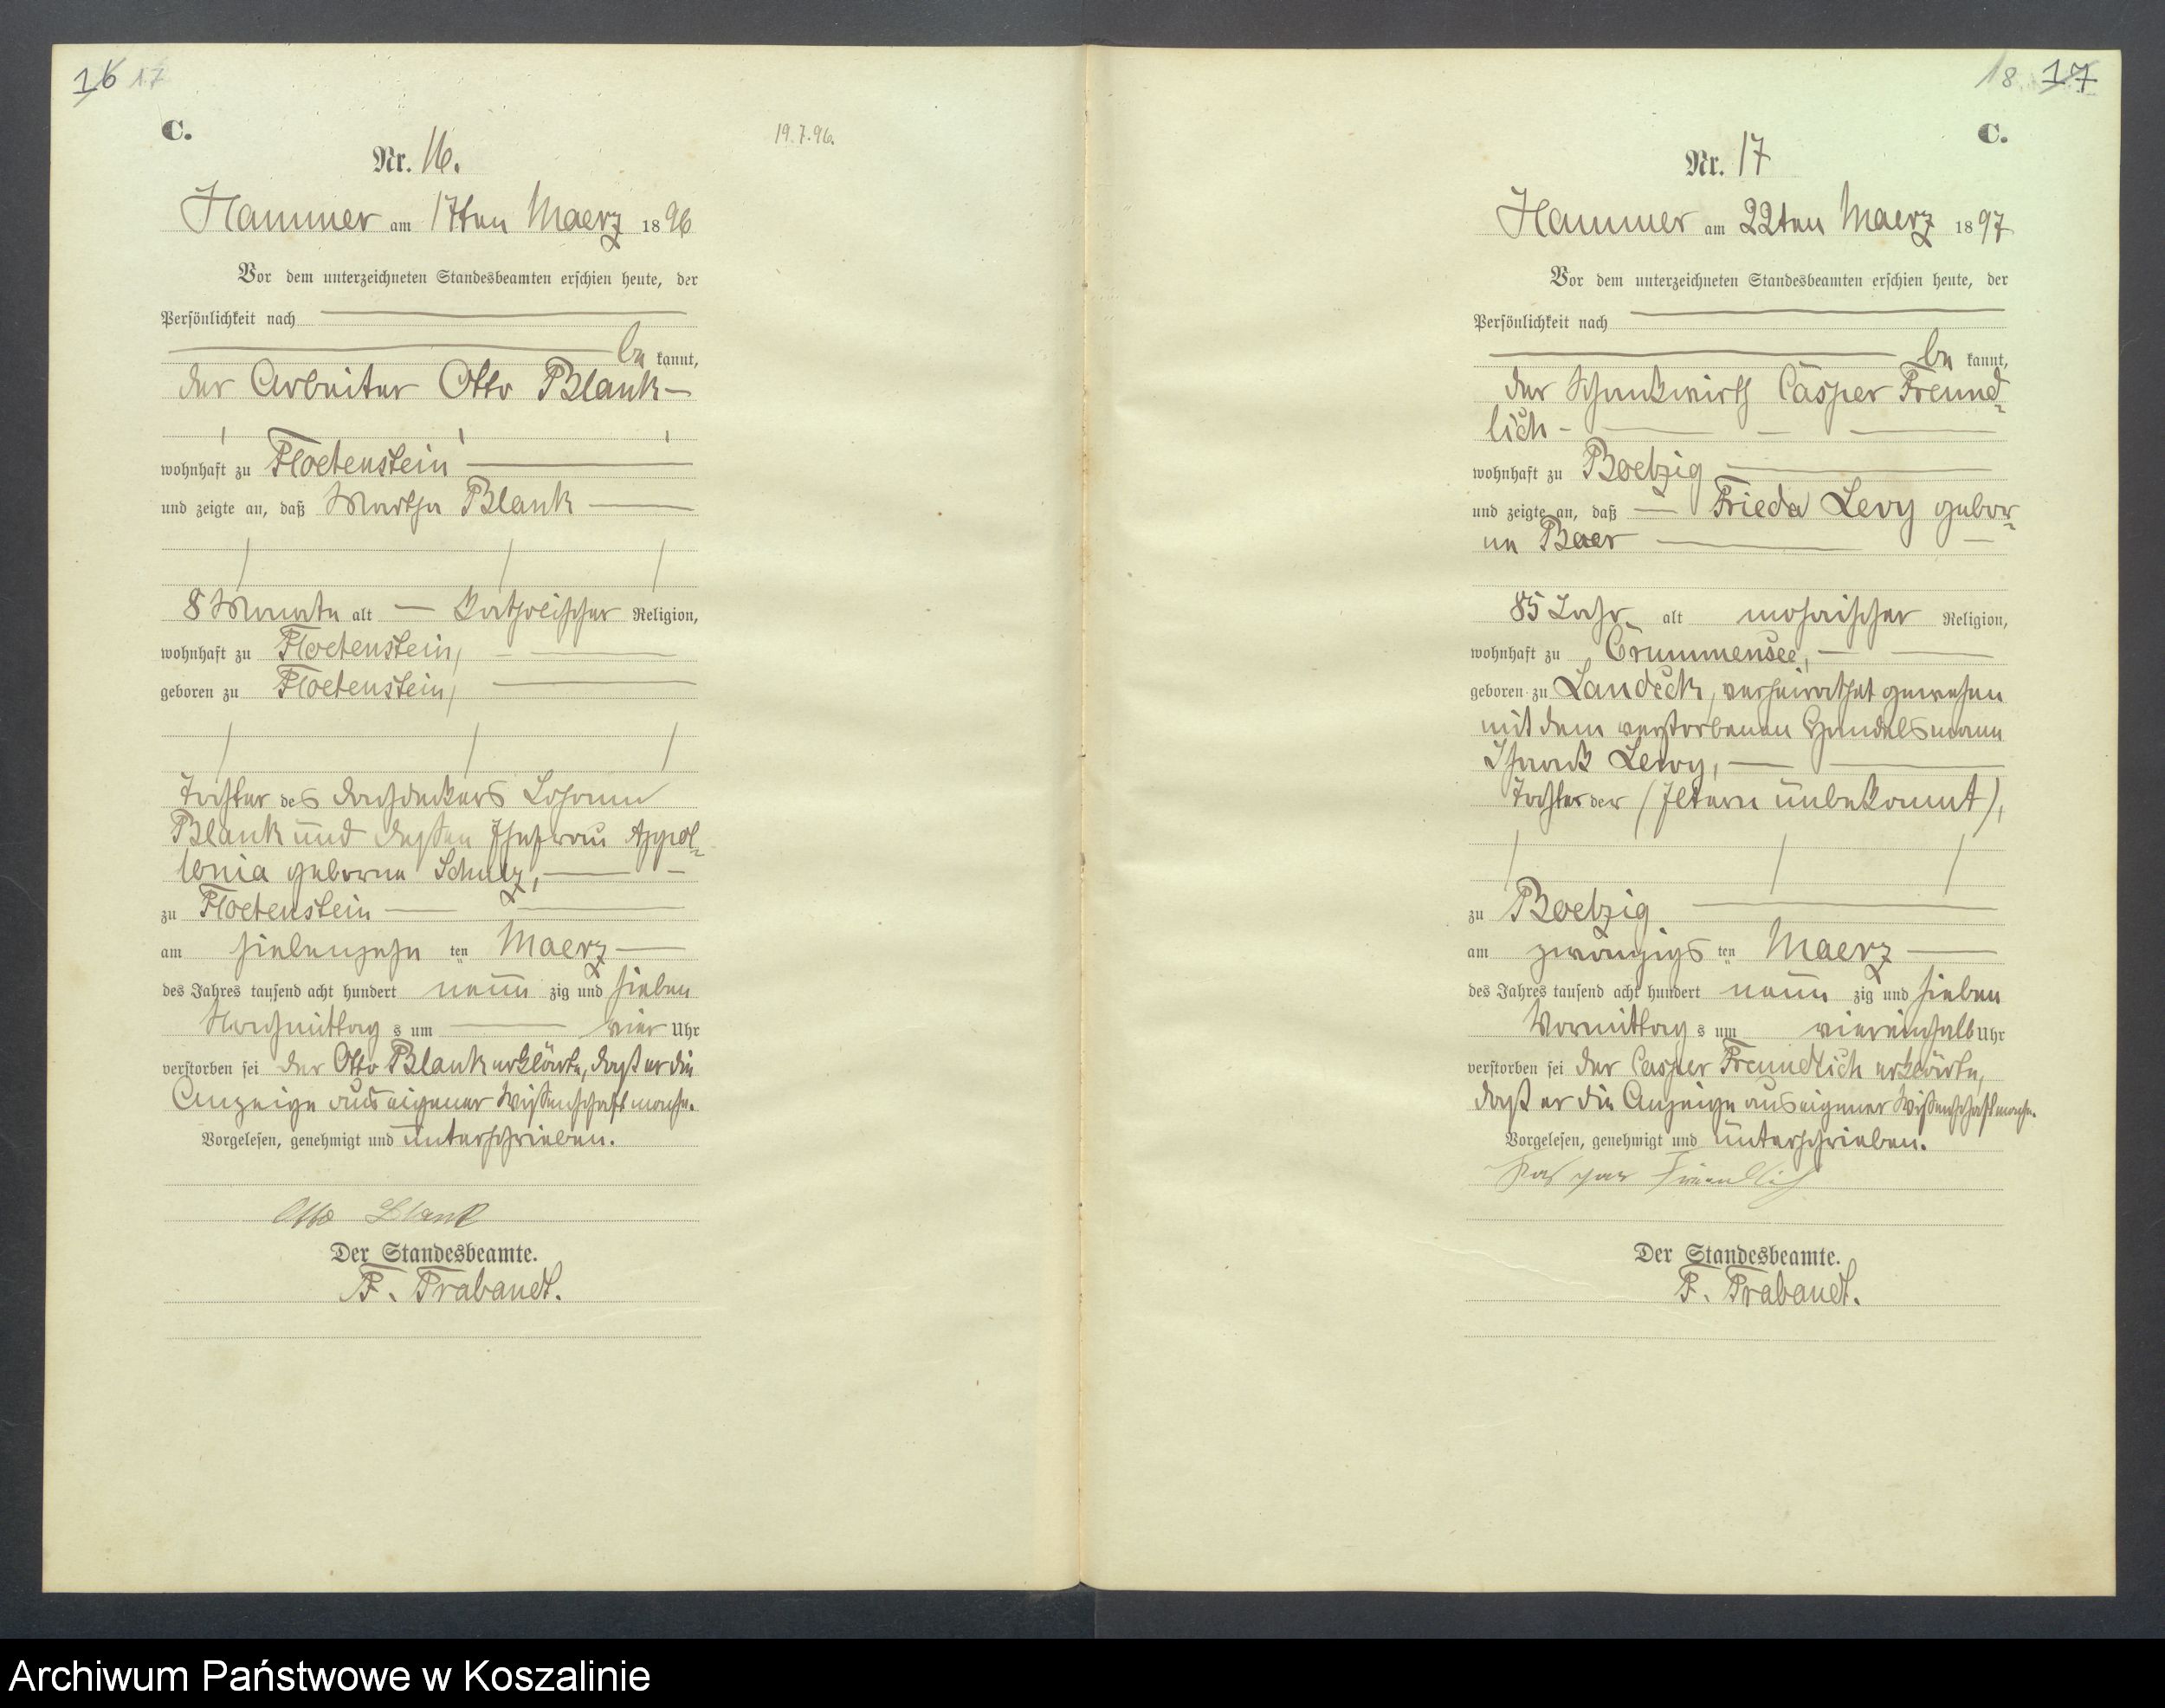 16 17
C.
19.7.96.
Nr. 16.
Hammer am 17ten Maerz 1896
Vor dem unterzeichneten Standesbeamten erschien heute, der
Persönlichkeit nach
be kannt,
der Arbeiter Otto Blank
wohnhaft zu Floetenstein
und zeigte an, daß Martha Blank
8 Monate alt katholischer Religion,
wohnhaft zu Floetenstein,
geboren zu Floetenstein,
Tochter des Dachdeckers Johann
Blank und dessen Ehefrau Appol-
lonia geborne Schulz,
zu Floetenstein
am siebenzehn ten Maerz
des Jahres tausend acht hundert neun zig und sieben
Nachmittag s um vier Uhr
verstorben sei der Otto Blank erklärte, daß er die
Anzeige aus eigener Wissenschaft mache.
Vorgelesen, genehmigt und unterschrieben.
Otto Blank
Der Standesbeamte.
F. Trabandt.
18 17
C.
Nr. 17
Hammer am 22ten Maerz 1897
Vor dem unterzeichneten Standesbeamten erschien heute, der
Persönlichkeit nach
be kannt,
der Schankwirth Casper Freund-
lich
wohnhaft zu Boelzig
und zeigte an, daß Frieda Levy gebor-
ne Baer
85 Jahr alt mosaischer Religion,
wohnhaft zu Crummensee,
geboren zu Landeck, verheirathet gewesen
mit dem verstorbenen Handelsmann
Isaak Levy,
Tochter der (Eltern unbekannt),
zu Boelzig
am zwanzigs ten Maerz
des Jahres tausend acht hundert neun zig und sieben
Vormittag s um viereinhalb Uhr
verstorben sei der Casper Freundlich erklärte,
daß er die Anzeige aus eigener Wissenschaft mache.
Vorgelesen, genehmigt und unterschrieben.
Kasper Freundlich
Der Standesbeamte.
F. Trabandt.
Archiwum Państwowe w Koszalinie